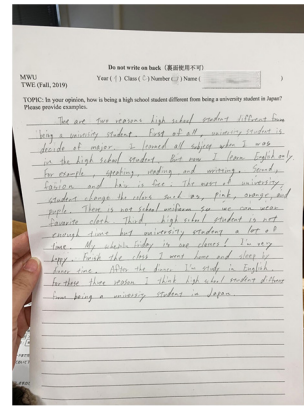 Do not write on back (裏面使用不可)
MWU Year ( ) Class ( ) Number ( ) Name ( )
TWE (Fall, 2019)
TOPIC: In your opinion, how is being a high school student different from being a university student in Japan?
Please provide examples.
The are two reasons high school student different from
being a university student. First of all, university student is
decide of major. I learned all subject when I was
in the high school student. But now I learn English only
for example, speaking, reading and writing. Second,
fasion and hair is free. The most of university
student change the colors such as, Pink, orange, and
There is not school uniform. So we can wear
favorite cloth. Third, high school student is not
enough time but university student a lot of
time. My whole friday is two classes! I'm very
happy. Finish the class I went home and sleep is
dinner time. After the dinner I'm study in English.
for these three reason I think high school student different
from being a university student in Japan.